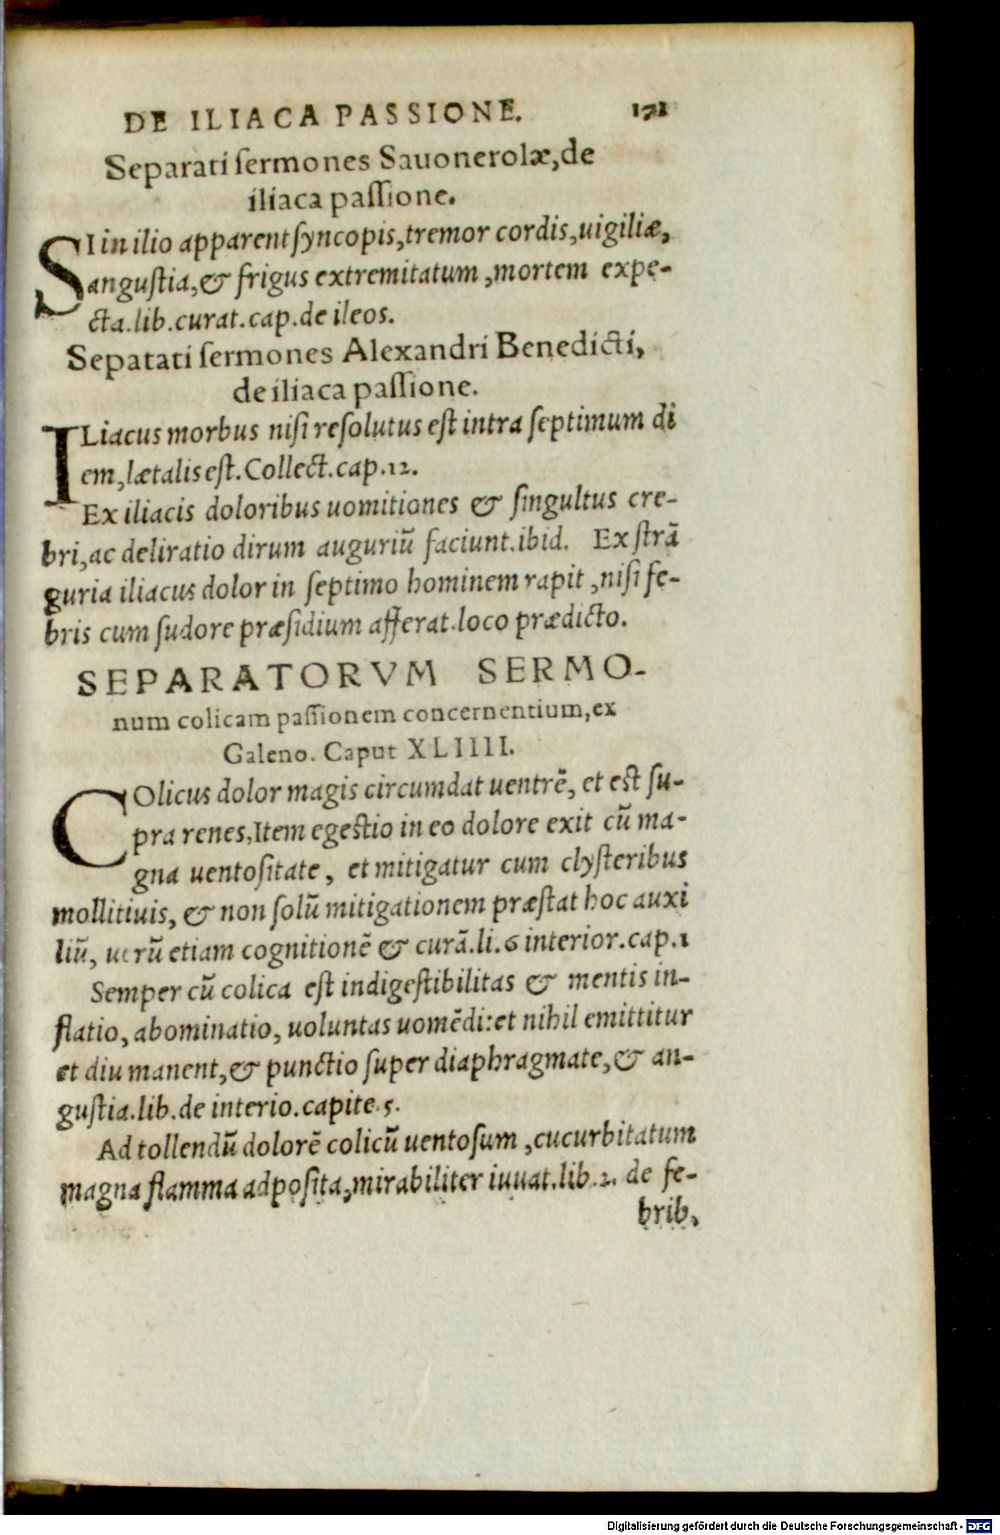 DE ILIACA PASSIONE. 171
Separati sermones Sauonerolæ,de
iliaca passione.
SI in ilio apparent syncopis,tremor cordis,uigiliæ,
angustia,& frigus extremitatum,mortem expe-
cta.lib.curat.cap.de ileos.
Sepatati sermones Alexandri Benedicti,
de iliaca passione.
ILiacus morbus nisi resolutus est intra septimum di
em,lætalis est.Collect.cap.12.
Ex iliacis doloribus uomitiones & singultus cre-
bri,ac deliratio dirum auguriũ faciunt.ibid. Ex strã
guria iliacus dolor in septimo hominem rapit,nisi fe-
bris cum sudore præsidium afferat.loco prædicto.
SEPARATORVM SERMO-
num colicam passionem concernentium,ex
Galeno. Caput XLIIII.
COlicus dolor magis circumdat uentrẽ, et est su-
pra renes,Item egestio in eo dolore exit cũ ma-
gna uentositate, et mitigatur cum clysteribus
mollitiuis, & non solũ mitigationem præstat hoc auxi
liũ, uerũ etiam cognitionẽ & curã.li.6 interior.cap.1
Semper cũ colica est indigestibilitas & mentis in-
flatio, abominatio, uoluntas uomẽdi:et nihil emittitur
et diu manent,& punctio super diaphragmate,& an-
gustia.lib.de interio.capite.5.
Ad tollendũ dolorẽ colicũ uentosum,cucurbitatum
magna flamma adposita,mirabiliter iuuat.lib.2. de fe-
brib,
Digitalisierung gefördert durch die Deutsche Forschungsgemeinschaft - DFG